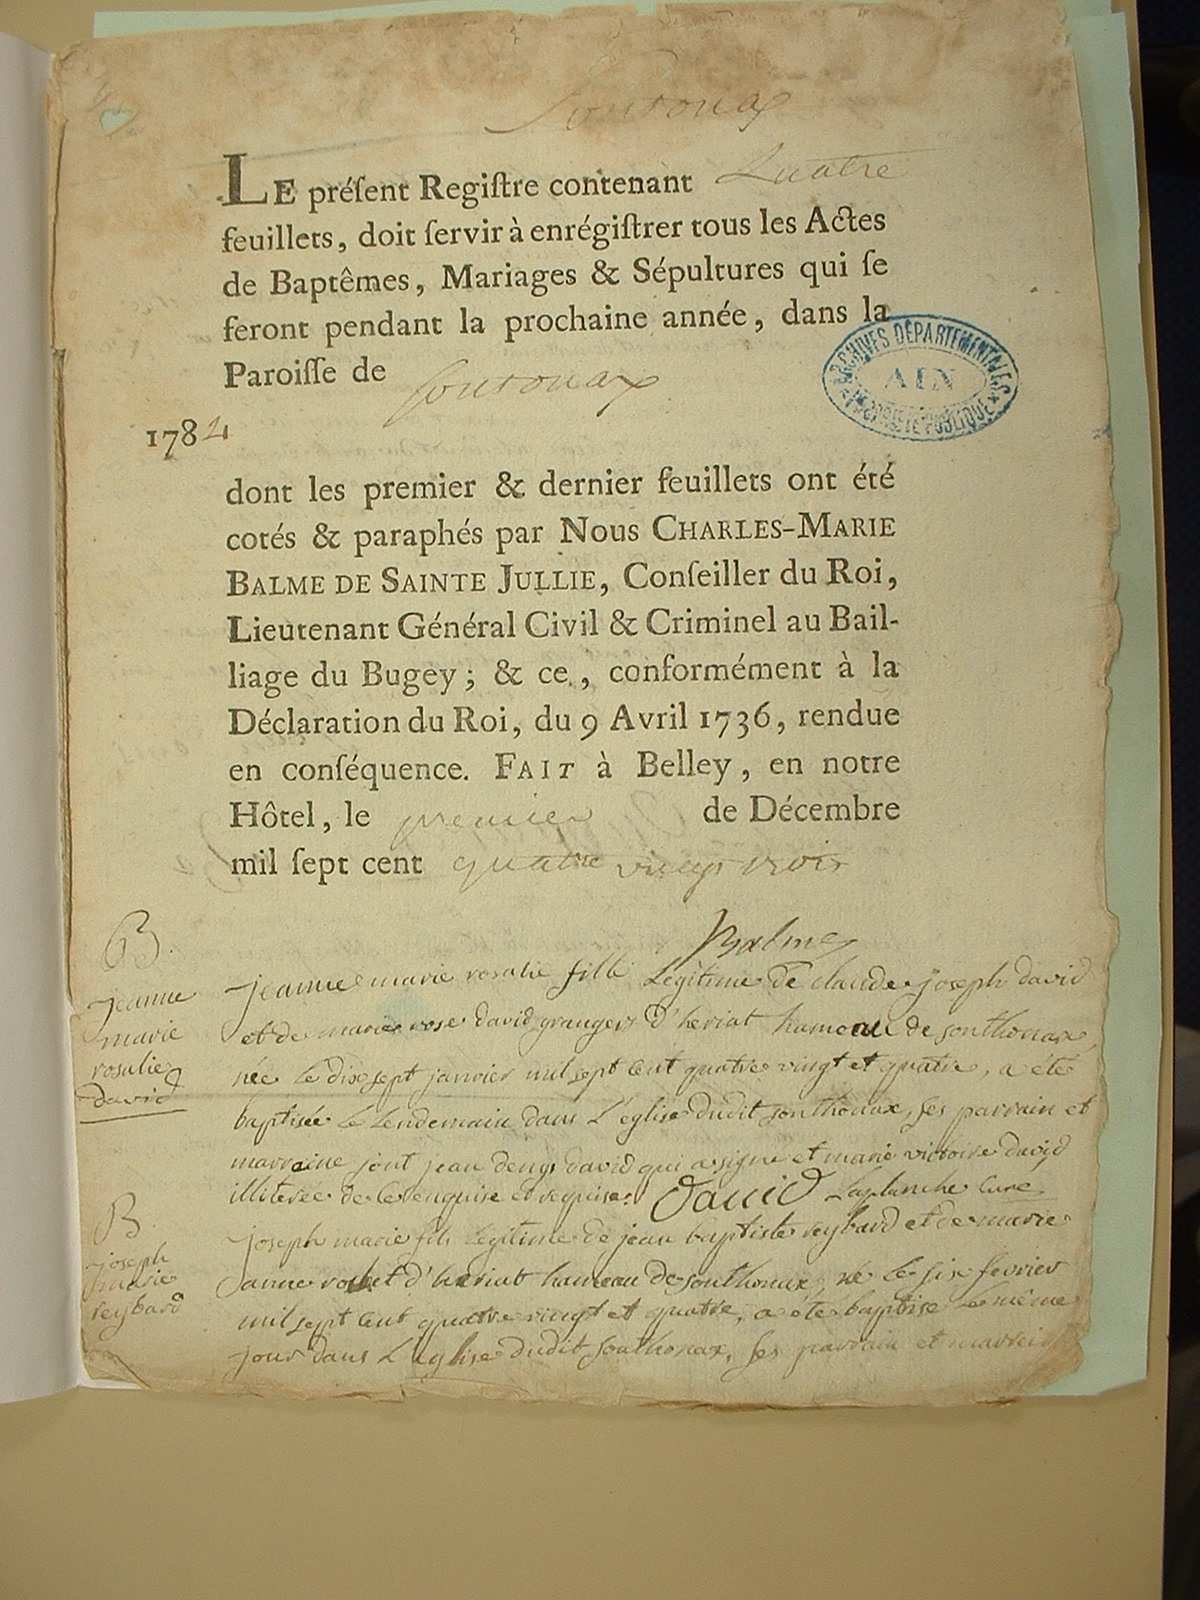 Sontonax
LE préſent Regiſtre contenant Quatre
feuillets, doit ſervir à enrégiſtrer tous les Actes
de Baptêmes, Mariages & Sépultures qui ſe
feront pendant la prochaine année, dans la
Paroiſſe de Sontonax
ARCHIVES DÉPARTEMENTALES
AIN
PROPRIÉTÉ PUBLIQUE
1784
dont les premier & dernier feuillets ont été
cotés & paraphés par Nous CHARLES-MARIE
BALME DE SAINTE JULLIE, Conſeiller du Roi,
Lieutenant Général Civil & Criminel au Bail-
liage du Bugey; & ce, conformément à la
Déclaration du Roi, du 9 Avril 1736, rendue
en conſéquence. FAIT à Belley, en notre
Hôtel, le premier de Décembre
mil ſept cent quatre vingt trois
Balme
B.
jeanne
marie
rosalie
david
jeanne marie rosalie fille Légitime de claude joseph david
et de marie rose david grangers d'heriat hameau de sonthonax
née le dix sept janvier mil sept cent quatre vingt et quatre, a été
baptisée le lendemain dans l'église dudit sonthonax, ses parrain et
marraine sont jean denys david qui a signé et marie victoire david
illiterée de ce enquise et requise. David Laplanche curé
B
joseph
marie
reybard
joseph marie fils légitime de jean baptiste reybard et de marie
anne d'heriat hameau de sonthonax, né le six fevrier
mil sept cent quatre vingt et quatre, a été baptisé le même
jour dans l'église dudit sonthonax, ses parrain et marraine